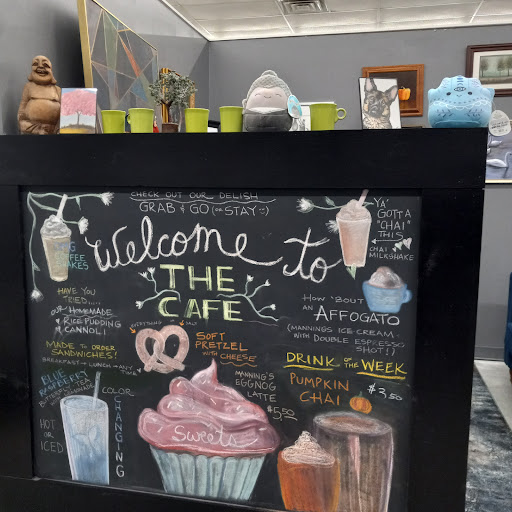 CHECK OUT OUR DELISH
GRAB & GO (OR STAY :)
Welcome to
THE
CAFE
COFFEE
SHAKES
HAVE YOU
TRIED.....
OUR HOMEMADE
RICE PUDDING
CANNOLI
MADE TO ORDER
SANDWICHES!
BREAKFAST LUNCH ANY TIME
BLUE
TEA
COLOR
CHANGING
HOT
OR
ICED
EVERYTHING OR SALT
SOFT
PRETZEL
WITH CHEESE
MANNING'S
EGGNOG
LATTE
$5.50
Sweets
YA'
GOTTA
"CHAI"
THIS
CHAI
MILKSHAKE
HOW 'BOUT
AN
AFFOGATO
(MANNINGS ICE CREAM
WITH DOUBLE ESPRESSO
SHOT!)
DRINK OF THE WEEK
PUMPKIN
CHAI
$3.50